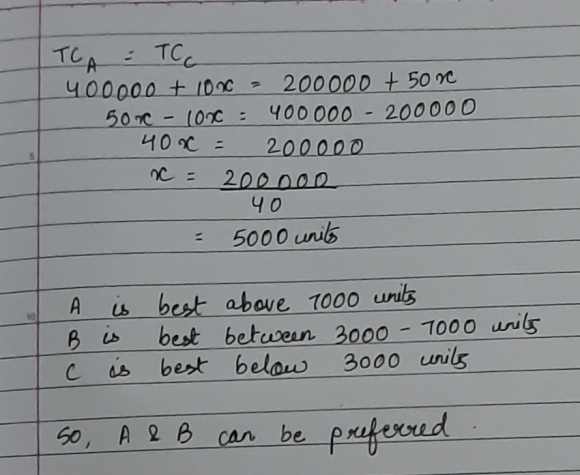 TC_A = TC_C
400000 + 10x = 200000 + 50x
50x - 10x = 400000 - 200000
40x = 200000
x = 200000
40
= 5000 units
A is best above 7000 units
B is best between 3000 - 7000 units
C is best below 3000 units
So, A & B can be preferred.